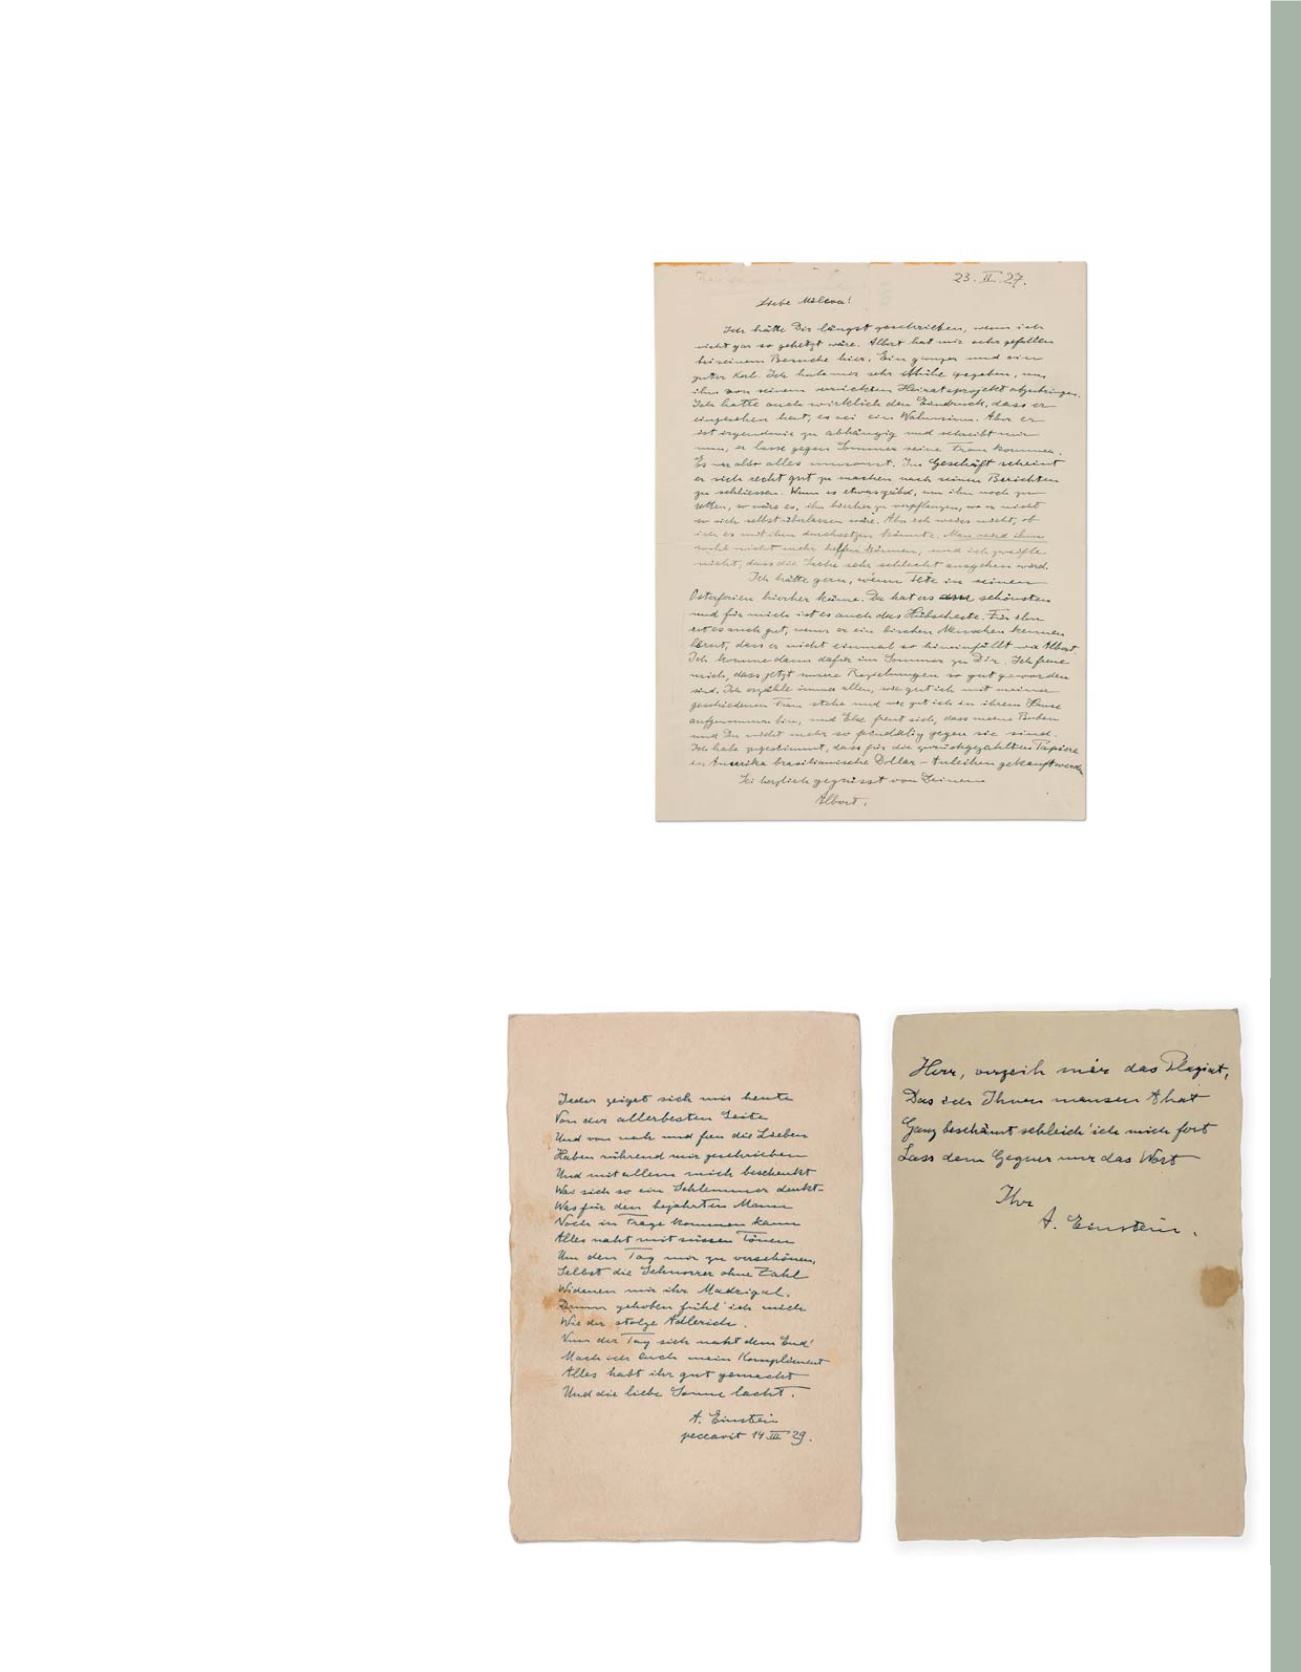 23. II. 27.
Liebe Mileva!
Ich hätte Dir längst geschrieben, wenn ich
nicht gar so gehetzt wäre. Albert hat mir sehr gefallen
bei seinem Besuche hier. Ein ganzer und ein
guter Kerl. Ich habe mir sehr Mühe gegeben, um
ihn von seinem verrückten Heiratsprojekt abzubringen.
Ich hatte auch wirklich den Eindruck, dass er
eingesehen hat, es sei ein Wahnsinn. Aber er
ist irgendwie zu abhängig und schreibt mir
nun, er lasse gegen Sommer seine Frau kommen.
Es war also alles umsonst. Im Geschäft scheint
er sich recht gut zu machen nach seinen Berichten
zu schliessen. Wenn es etwas gäbe, um ihn noch zu
retten, so wäre es, ihn hierher zu verpflanzen, wo er nicht
so sich selbst überlassen wäre. Aber ich weiss nicht, ob
ich es mit ihm durchsetzen könnte. Man wird ihm
wohl nicht mehr helfen können, und ich zweifle
nicht, dass die Sache sehr schlecht ausgehen wird.
Ich hätte gern, wenn Tete in seinen
Osterferien hierher käme. Da hat ers am schönsten
und für mich ist es auch das Hübscheste. Für ihn
ist es auch gut, wenn er ein bischen Menschen kennen
lernt, dass er nicht einmal so hineinfällt wie Albert.
Ich komme dann dafür im Sommer zu Dir. Ich freue
mich, dass jetzt unsere Beziehungen so gut geworden
sind. Ich erzähle immer allen, wie gut ich mit meiner
geschiedenen Frau stehe und wie gut ich in ihrem Hause
aufgenommen bin, und Else freut sich, dass meine Buben
und Du nicht mehr so feindselig gegen sie sind.
Ich habe zugestimmt, dass für die zurückgezahlten Papiere
in Amerika brasilianische Dollar-Anleihen gekauft werden
Sei herzlich gegrüsst von Deinem
Albert.
Jeder zeiget sich mir heute
Von der allerbesten Seite
Und von nah und fern die Lieben
Haben rührend mir geschrieben
Und mit allem mich beschenkt
Was sich so ein Schlemmer denkt-
Was für den bejahrten Mann
Noch in Frage kommen kann
Alles naht mit süssen Tönen
Um den Tag mir zu verschönen,
Selbst die Schnorrer ohne Zahl
Widmen mir ihr Madrigal.
Drum gehoben fühl' ich mich
Wie der stolze Adlerich.
Nun der Tag sich naht dem End'
Mach ich Euch mein Kompliment
Alles habt ihr gut gemacht
Und die liebe Sonne lacht.
A. Einstein
peccavit 14 III 29.
Herr, verzeih mir das Plagiat,
Das ich Ihnen mausen that
Ganz beschämt schleich' ich mich fort
Lass dem Gegner nur das Wort
Ihr
A. Einstein.